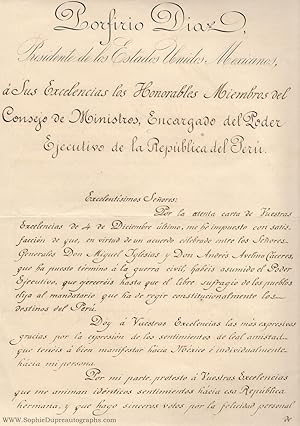 Porfirio Diaz,
Presidente de los Estados Unidos Mexicanos,
á Sus Excelencias los Honorables Miembros del
Consejo de Ministros, Encargado del Poder
Ejecutivo de la República del Perú.
Excelentísimos Señores:
Por la atenta carta de Vuestras
Excelencias de 4 de Diciembre último, me he impuesto con satis-
facción de que, en virtud de un acuerdo celebrado entre los Señores
Generales Don Miguel Iglesias y Don Andrés Avelino Cáceres,
que ha puesto término á la guerra civil, habéis asumido el Poder
Ejecutivo, que ejerceréis hasta que el libre sufragio de los pueblos
elija al mandatario que ha de regir constitucionalmente los
destinos del Perú.
Doy á Vuestras Excelencias las más expresivas
gracias por la expresión de los sentimientos de leal amistad
que tenéis á bien manifestar hacia México é individualmente
hacia mi persona.
Por mi parte, protesto á Vuestras Excelencias
que me animan idénticos sentimientos hacia esa República
hermana, y que hago sinceros votos por la felicidad personal
de
www.SophieDupreAutographs.com